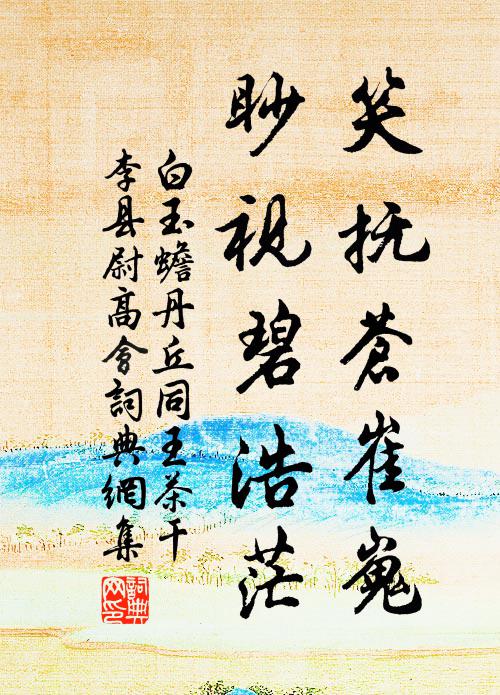 笑抚蒼崔嵬
眇視碧浩茫
白玉蟾丹丘同王茶干
李县尉高會詞典網集
詞典网印